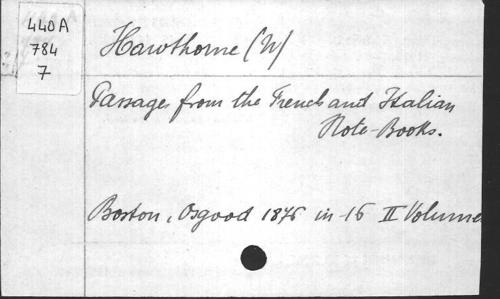 440A
784
7
Hawthorne (N)
Passages from the French and Italian
Note-Books.
Boston, Osgood 1876 in-16 II Volume